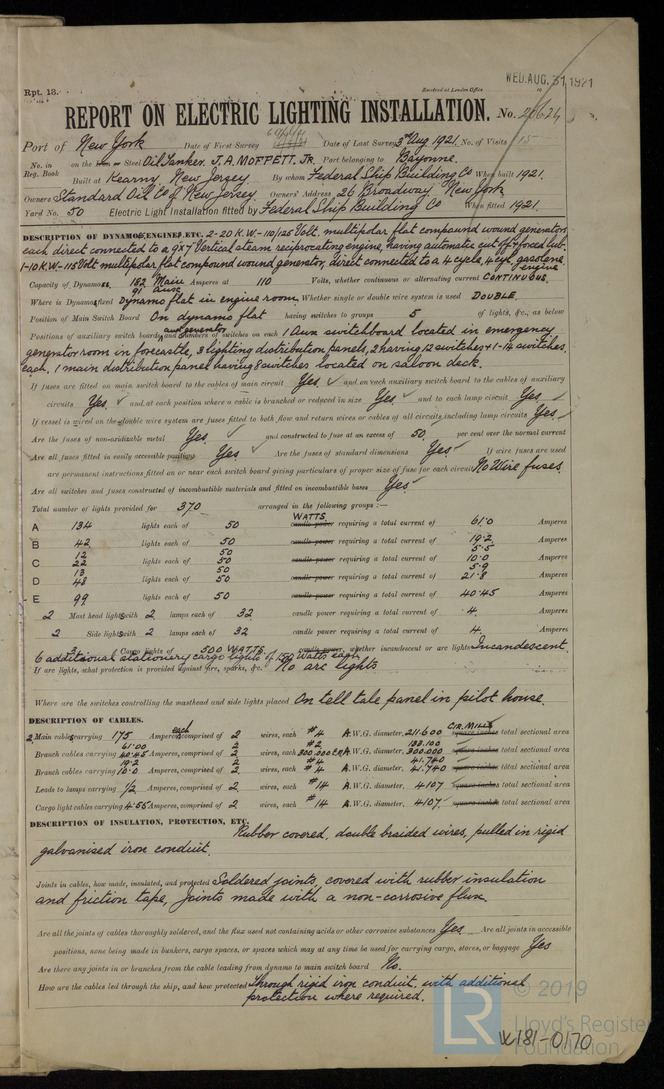 Rpt. 13.
Received at London Office WED. AUG. 31 1921
REPORT ON ELECTRIC LIGHTING INSTALLATION. No. 20624
Port of New York Date of First Survey Date of Last Survey 3rd Aug 1921 No. of Visits 15
No. in Reg. Book on the Iron or Steel Oil Tanker. J. A. MOFFETT, Jr. Port belonging to Bayonne.
Built at Kearny, New Jersey By whom Federal Ship Building Co When built 1921.
Owners Standard Oil Co of New Jersey. Owners' Address 26 Broadway New York
Yard No. 50 Electric Light Installation fitted by Federal Ship Building Co When fitted 1921.
DESCRIPTION OF DYNAMOS, ENGINES, ETC. 2-20 K.W.-110/125 Volt. multipolar flat compound wound generators
each direct connected to a 9x7 Vertical steam reciprocating engine, having automatic cut off & forced lub.
1-10 K.W.-115 Volt multipolar flat compound wound generator, direct connected to a 4 cycle, 4 cyl. gasolene engine
Capacity of Dynamos. 182 Main Amperes at 110 Volts, whether continuous or alternating current CONTINUOUS.
91 Aux.
Where is Dynamo fixed Dynamo flat in engine room. Whether single or double wire system is used DOUBLE.
Position of Main Switch Board On dynamo flat having switches to groups 5 of lights, &c., as below
Positions of auxiliary switch boards and numbers of switches on each 1 Aux switchboard located in emergency
generator room in forcastle, 3 lighting distribution panels, 2 having 12 switches & 1-14 switches
each. 1 main distribution panel having 8 switches located on saloon deck.
If fuses are fitted on main switch board to the cables of main circuit Yes and on each auxiliary switch board to the cables of auxiliary
circuits Yes and at each position where a cable is branched or reduced in size Yes and to each lamp circuit Yes
If vessel is wired on the double wire system are fuses fitted to both flow and return wires or cables of all circuits including lamp circuits Yes
Are the fuses of non-oxidizable metal Yes and constructed to fuse at an excess of 50 per cent over the normal current
Are all fuses fitted in easily accessible positions Yes Are the fuses of standard dimensions Yes If wire fuses are used
are permanent instructions fitted on or near each switch board giving particulars of proper size of fuse for each circuit No Wire fuses
Are all switches and fuses constructed of incombustible materials and fitted on incombustible bases Yes
Total number of lights provided for 370 arranged in the following groups :—
WATTS
A 134 lights each of 50 candle power requiring a total current of 61.0 Amperes
B 42 lights each of 50 candle power requiring a total current of 19.2 Amperes
12 50 5.5
C 22 lights each of 50 candle power requiring a total current of 10.0 Amperes
13 50 5.9
D 48 lights each of 50 candle power requiring a total current of 21.8 Amperes
E 99 lights each of 50 candle power requiring a total current of 40.45 Amperes
2 Mast head lights with 2 lamps each of 32 candle power requiring a total current of .4 Amperes
2 Side lights with 2 lamps each of 32 candle power requiring a total current of .4 Amperes
Cargo lights of 500 WATTS. candle power, whether incandescent or arc lights Incandescent.
6 additional stationery cargo lights of 150 Watts each.
If arc lights, what protection is provided against fire, sparks, &c. No arc lights
Where are the switches controlling the masthead and side lights placed On tell tale panel in pilot house.
DESCRIPTION OF CABLES.
CIR. MILLS
2 Main cables carrying 175 Amperes, each comprised of 2 wires, each #4 A.W.G. diameter, 211.600 square inches total sectional area
61.00 2 #2 133.100
Branch cables carrying 40.45 Amperes, comprised of 2 wires, each 300.000 C.M. A.W.G. diameter, 300.000 square inches total sectional area
19.2 2 #4 41.740
Branch cables carrying 10.0 Amperes, comprised of 2 wires, each #4 A.W.G. diameter, 41.740 square inches total sectional area
Leads to lamps carrying 1/2 Amperes, comprised of 2 wires, each #14 A.W.G. diameter, 4107 square inches total sectional area
Cargo light cables carrying 4.55 Amperes, comprised of 2 wires, each #14 A.W.G. diameter, 4107 square inches total sectional area
DESCRIPTION OF INSULATION, PROTECTION, ETC.
Rubber covered, double braided wires, pulled in rigid
galvanised iron conduit.
Joints in cables, how made, insulated, and protected Soldered joints, covered with rubber insulation
and friction tape, Joints made with a non-corrosive flux.
Are all the joints of cables thoroughly soldered, and the flux used not containing acids or other corrosive substances Yes Are all joints in accessible
positions, none being made in bunkers, cargo spaces, or spaces which may at any time be used for carrying cargo, stores, or baggage Yes
Are there any joints in or branches from the cable leading from dynamo to main switch board No.
How are the cables led through the ship, and how protected Through rigid iron conduit, with additional
protection where required.
LR © 2019
Lloyd's Register
Foundation
W181-0170